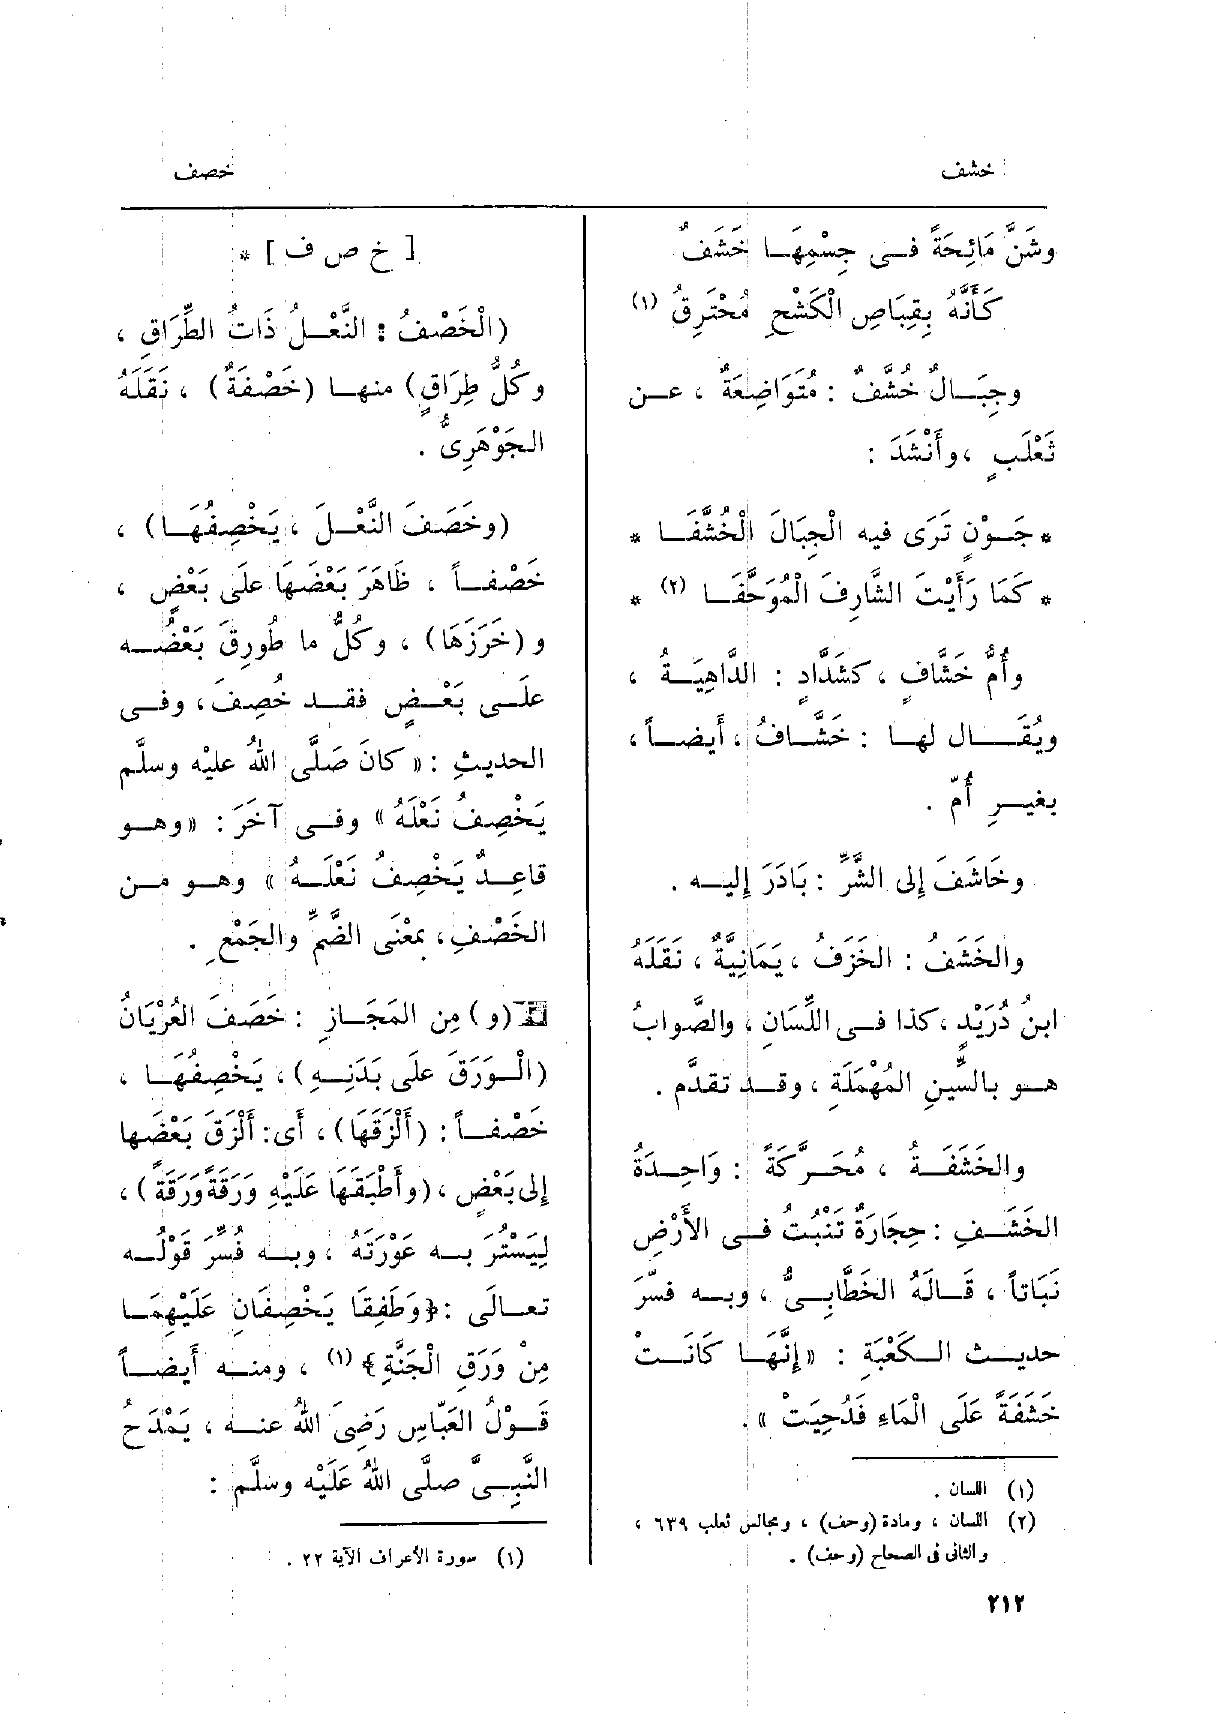 خشف
خصف
وشَنَّ مَائِحَةً فى جِسْمِهَا خَشَفٌ
كَأَنَّهُ بِقِبَاصِ الْكَشْحِ مُخْتَرِقُ (١)
وجِبَالٌ خُشَّفٌ : مُتَوَاضِعَةٌ ، عن
ثَعْلَبٍ ، وأَنْشَدَ :
* جَوْنٍ تَرَى فيه الْجِبَالَ الْخُشَّفَا *
* كَمَا رَأَيْتَ الشَّارِفَ الْمُوَحَّفَا (٢) *
وأُمُّ خَشَّافٍ ، كشَدَّادٍ : الدَّاهِيَةُ ،
ويُقَال لها : خَشَّافُ ، أَيضاً ،
بغيرِ أُمّ .
وخَاشَفَ إِلى الشَّرِّ : بَادَرَ إِليه .
والخَشَفُ : الخَزَفُ ، يَمَانِيَّةٌ ، نَقَلَهُ
ابنُ دُرَيْدٍ ، كذا فى اللِّسَانِ ، والصَّوابُ
هو بالسِّينِ المُهْمَلَةِ ، وقد تقدَّم .
والخَشَفَةُ ، مُحَرَّكَةً : وَاحِدَةُ
الخَشَفِ : حِجَارَةٌ تَنْبُتُ فى الأَرْضِ
نَبَاتاً ، قَالَهُ الخَطَّابِىُّ ، وبه فسِّرَ
حديث الكَعْبَةِ : « إِنَّهَا كَانَتْ
خَشَفَةً عَلَى الْمَاءِ فَدُحِيَتْ » .
(١) اللسان .
(٢) اللسان ، ومادة (وحف) ، ومجالس ثعلب ٦٣٩ ،
والثانى فى الصحاح (وحف) .
[ خ ص ف ] *
(الْخَصْفُ : النَّعْلُ ذَاتُ الطِّرَاقِ ،
وكُلُّ طِرَاقٍ) منها (خَصْفَةٌ) ، نَقَلَهُ
الجَوْهَرِىُّ .
(وخَصَفَ النَّعْلَ ، يَخْصِفُهَا) ،
خَصْفاً ، ظَاهَرَ بَعْضَهَا علَى بَعْضٍ ،
و (خَرَزَهَا) ، وكُلُّ ما طُورِقَ بَعْضُه
علَى بَعْضٍ فقد خُصِفَ ، وفى
الحديثِ : « كانَ صَلَّى اللهُ عليْه وسلَّم
يَخْصِفُ نَعْلَهُ » وفى آخَرَ : « وهو
قاعِدٌ يَخْصِفُ نَعْلَهُ » وهو من
الخَصْفِ ، بمعْنَى الضَّمِّ والجَمْعِ .
(و) مِن المَجَازِ : خَصَفَ العُرْيَانُ
(الْوَرَقَ علَى بَدَنِهِ) ، يَخْصِفُهَا ،
خَصْفاً : (أَلْزَقَهَا) ، أَى : أَلْزَقَ بَعْضَها
إِلى بَعْضٍ ، (وأَطْبَقَهَا عَلَيْهِ وَرَقَةً وَرَقَةً) ،
لِيَسْتُرَ به عَوْرَتَهُ ، وبه فُسِّرَ قَوْلُه
تعالَى : ﴿وَطَفِقَا يَخْصِفَانِ عَلَيْهِمَا
مِنْ وَرَقِ الْجَنَّةِ﴾ (١) ، ومنه أَيضاً
قَوْلُ العَبّاسِ رَضِىَ اللهُ عنه ، يَمْدَحُ
النَّبِىَّ صلَّى اللهُ عَلَيْه وسلَّم :
(١) سورة الأعراف الآية ٢٢ .
٢١٢